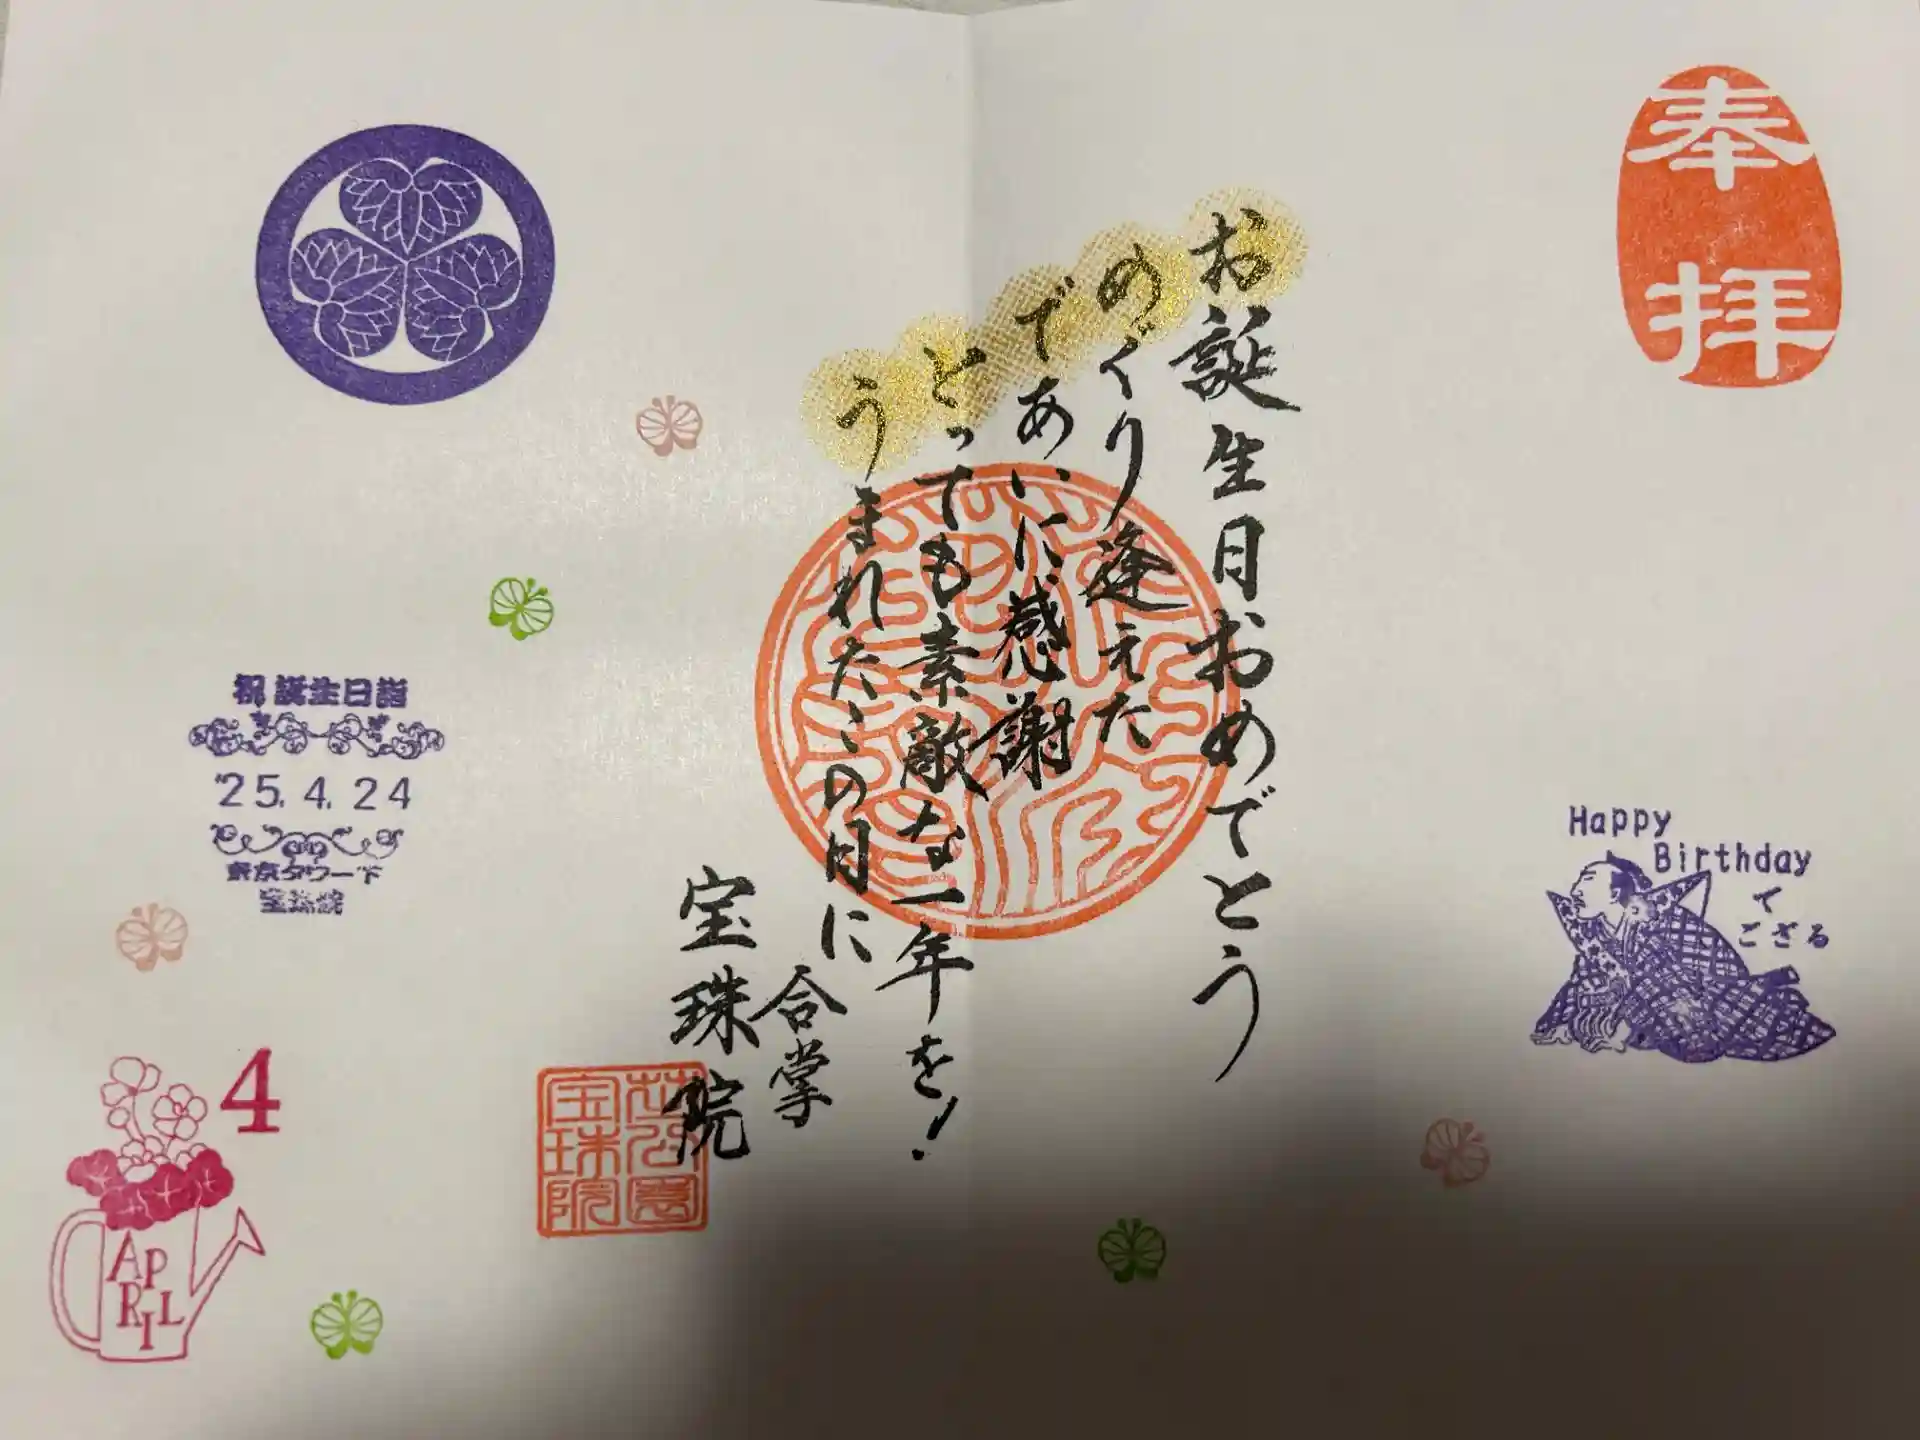 奉拝
Happy
Birthday
で
ござる
お誕生日おめでとう
めぐり逢えた
であいに感謝
とっても素敵な一年を!
うまれたこの日に
合掌
宝珠院
芝公園
宝珠院
祝 誕生日詣
'25.4.24
東京タワー下
宝珠院
4
APRIL